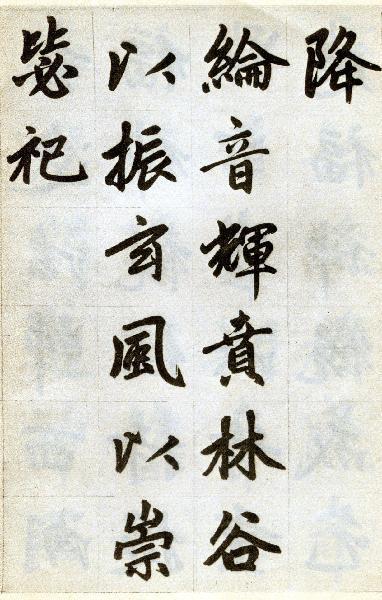 降
綸音輝賁林谷
以振玄風以崇
毖祀